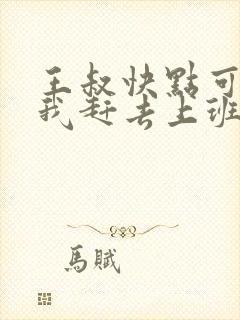 王叔快點可
我赶去上班
馬賦